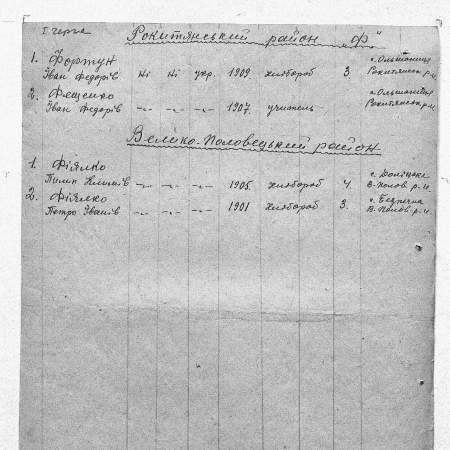 I. черга
Рокитянський район „Ф"
1. Фортун с. Ольшаниця
Іван Федорів Ні Ні укр. 1909 хлібороб 3. Рокитянськ р-н
2. Фещенко с. Ольшаниця
Іван Федорів -„- -„- -„- 1907. учитель Рокитянськ р-н
Велико-Половецький район
1. Фіялко
Пилип Климів -„- -„- -„- 1905. хлібороб 4. В-Полов р-н.
2. Фіялко с. Безпечна
Петро Іванів -„- -„- -„- 1901 хлібороб 3. В. Полов р-н.